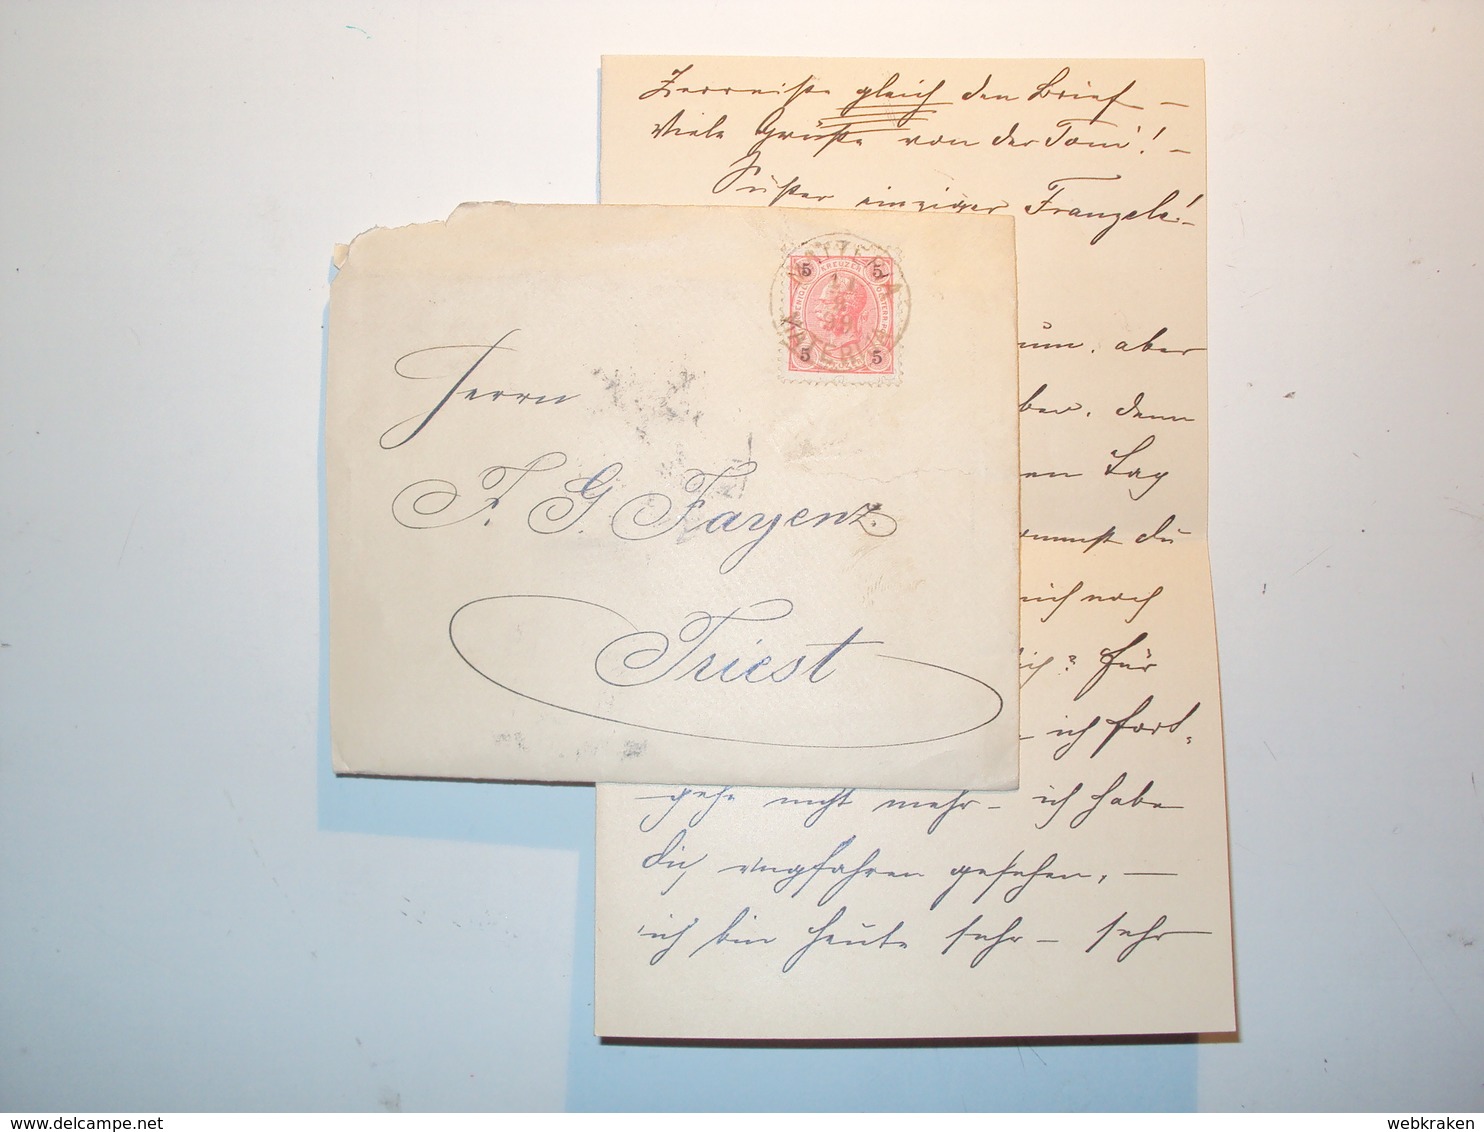 Zerreiße gleich den Brief –
Viele Grüße von der Toni! –
Süßer einziger Franzele! –
aber
denn
en Tag
ommst Du
mich noch
Für
ich fort,
gehe nicht mehr – ich habe
Dich ungefahren gesehen, –
ich bin heute sehr – sehr
5 KREUZER 5
MATTERIA
11
8
99
MATERIJA
5 5
Herrn
F. G. Fayenz.
Triest
webkraken
delcampe.net